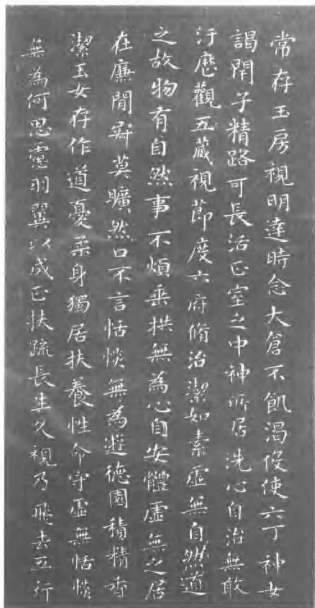 常存玉房視明達時念大倉不飢渴役使六丁神女
謁閉子精路可長活正室之中神所居洗心自治無敢
汙歷觀五藏視節度六府脩治潔如素虛無自然道
之故物有自然事不煩垂拱無為心自安體虛無之居
在廉間寂莫曠然口不言恬惔無為遊德園積精香
潔玉女存作道憂柔身獨居扶養性命守虛無恬惔
無為何思慮羽翼以成正扶疏長生久視乃飛去五行